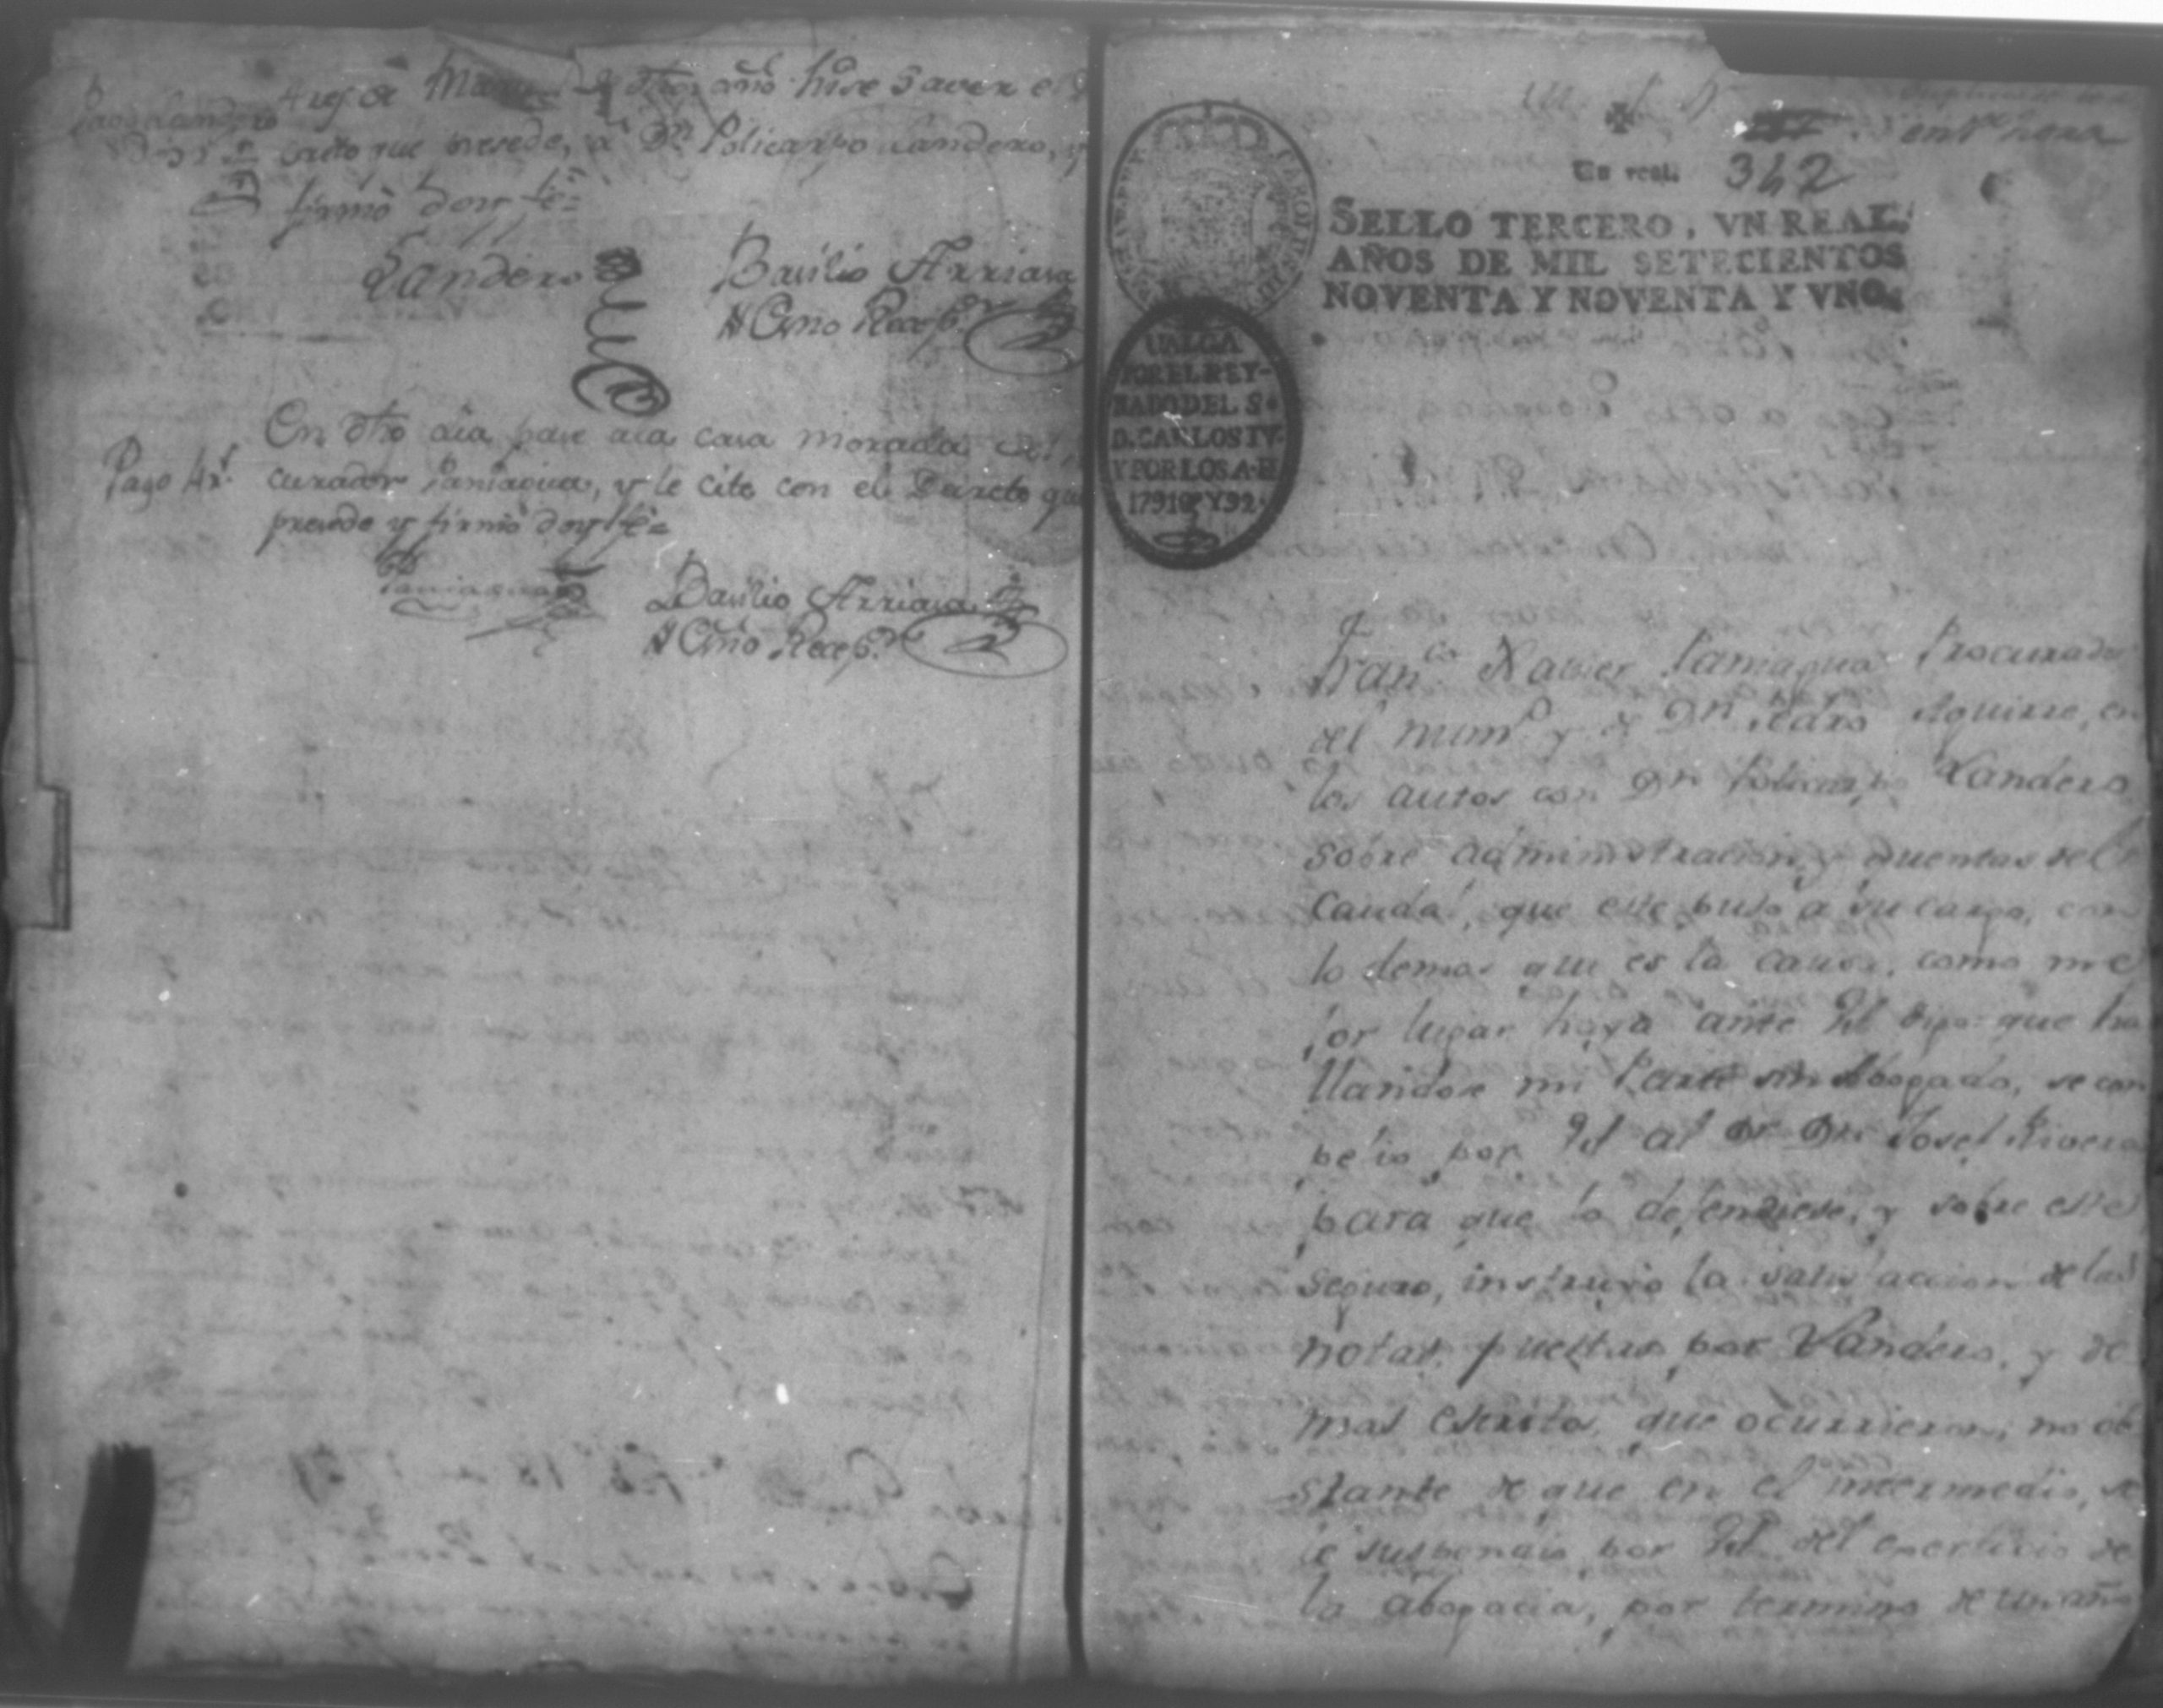 de dho año hise saver el
Pago Landero
auto que presede, a Dn Policarpo Landero, y
firmó doy fe=
Landero
Basilio Arriara
Sno Recepr
En dho dia pase a la casa morada del
Pago 4 rs. curador Paniagua, y le cite con el Decreto que
presede y firmó doy fe=
Paniagua
Basilio Arriara
Sno Recepr
Un real. 342
SELLO TERCERO, VN REAL,
AÑOS DE MIL SETECIENTOS
NOVENTA Y NOVENTA Y VNO.
VALGA
POR EL REY-
NADO DEL S.
D. CARLOS IV.
Y POR LOS A. D
1791 Y 92.
Franco Xavier Paniagua Procurador
del numo y de Dn Pedro Aguirre, en
los autos con Dn Policarpo Landero
sobre administracion y quentas del
Caudal, que este puso a su cargo, con
lo demas que es la causa, como me
jor lugar haya ante Vd digo que ha
llandose mi Parte sin Abogado, se com
pelio por Vd al Dr Dn Josef Rivera
para que lo defendiese, y sobre este
seguro, instruyó la satisfaccion de las
notas, puestas por Landero, y de
mas escritos que ocurrieron; no ob
stante de que en el intermedio, se
le suspendio por Vd. del exercicio de
la abogacia, por termino de un año